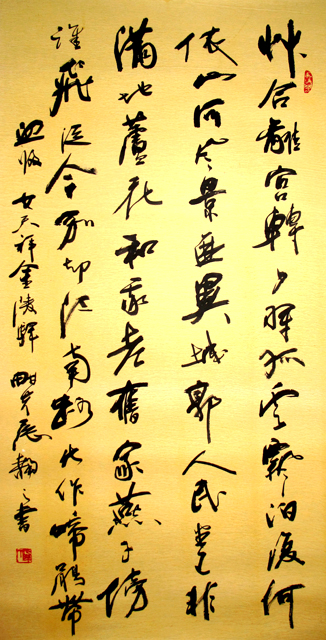 艸合離宮轉夕暉孤雲飄泊復何
依山河風景無異城郭人民非
滿地蘆花和我老舊家燕子傍
誰飛從今別却江南路化作啼鵑帶
血歸 文天祥金陵驛 書